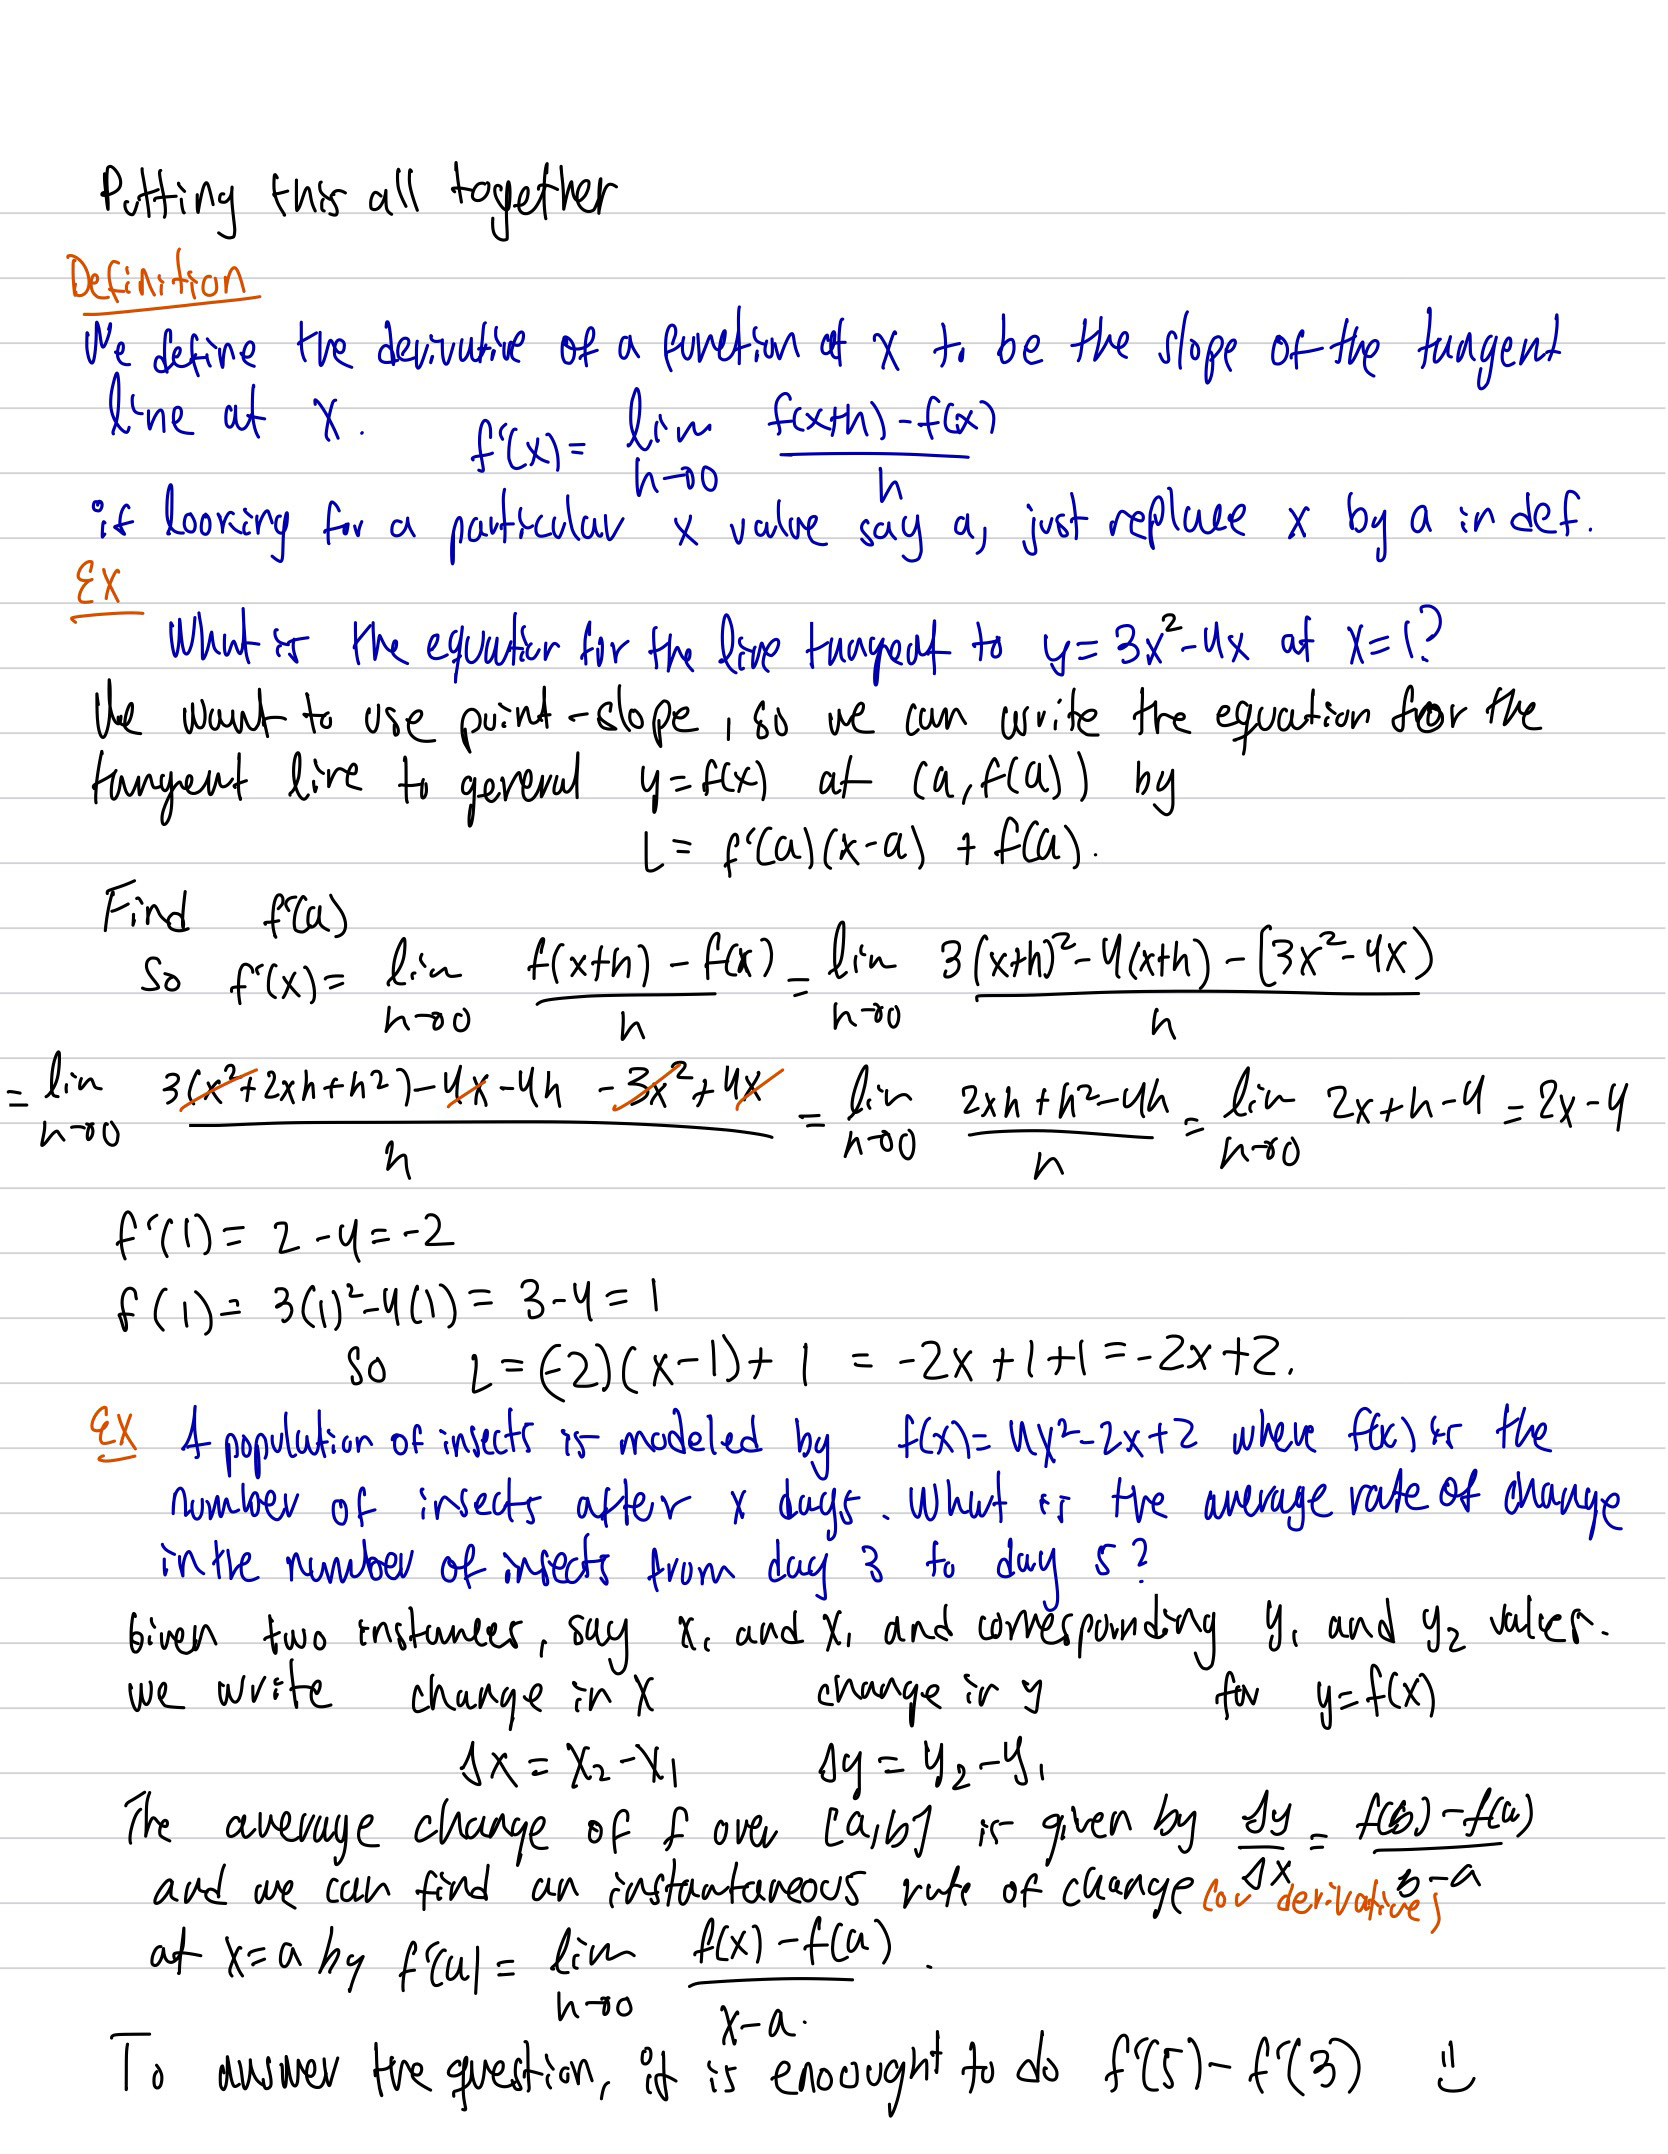 Putting this all together
Definition
We define the derivative of a function at x to be the slope of the tangent
line at x. f'(x) = lim h→0 f(x+h)-f(x) / h
if looking for a particular x value say a, just replace x by a in def.
Ex
What is the equation for the line tangent to y=3x²-4x at x=1?
We want to use point-slope, so we can write the equation for the
tangent line to general y=f(x) at (a,f(a)) by
L = f'(a)(x-a) + f(a).
Find f'(a)
So f'(x) = lim h→0 f(x+h) - f(x) / h = lim h→0 3(x+h)²-4(x+h) - (3x²-4x) / h
= lim h→0 3(x²+2xh+h²)-4x-4h -3x²+4x / h = lim h→0 2xh+h²-4h / h = lim h→0 2x+h-4 = 2x-4
f'(1) = 2-4 = -2
f(1) = 3(1)²-4(1) = 3-4 = 1
So L = (-2)(x-1)+1 = -2x+1+1 = -2x+2.
Ex A population of insects is modeled by f(x)= 4x²-2x+2 where f(x) is the
number of insects after x days. What is the average rate of change
in the number of insects from day 3 to day 5?
Given two instances, say x₁ and x₁ and corresponding y₁ and y₂ values.
we write change in x change in y for y=f(x)
Δx = x₂-x₁ Δy = y₂-y₁
The average change of f over [a,b] is given by Δy / Δx = f(b)-f(a) / b-a
and we can find an instantaneous rate of change (or derivatives)
at x=a by f'(a) = lim h→0 f(x)-f(a) / x-a.
To answer the question, it is enoought to do f'(5)-f'(3)